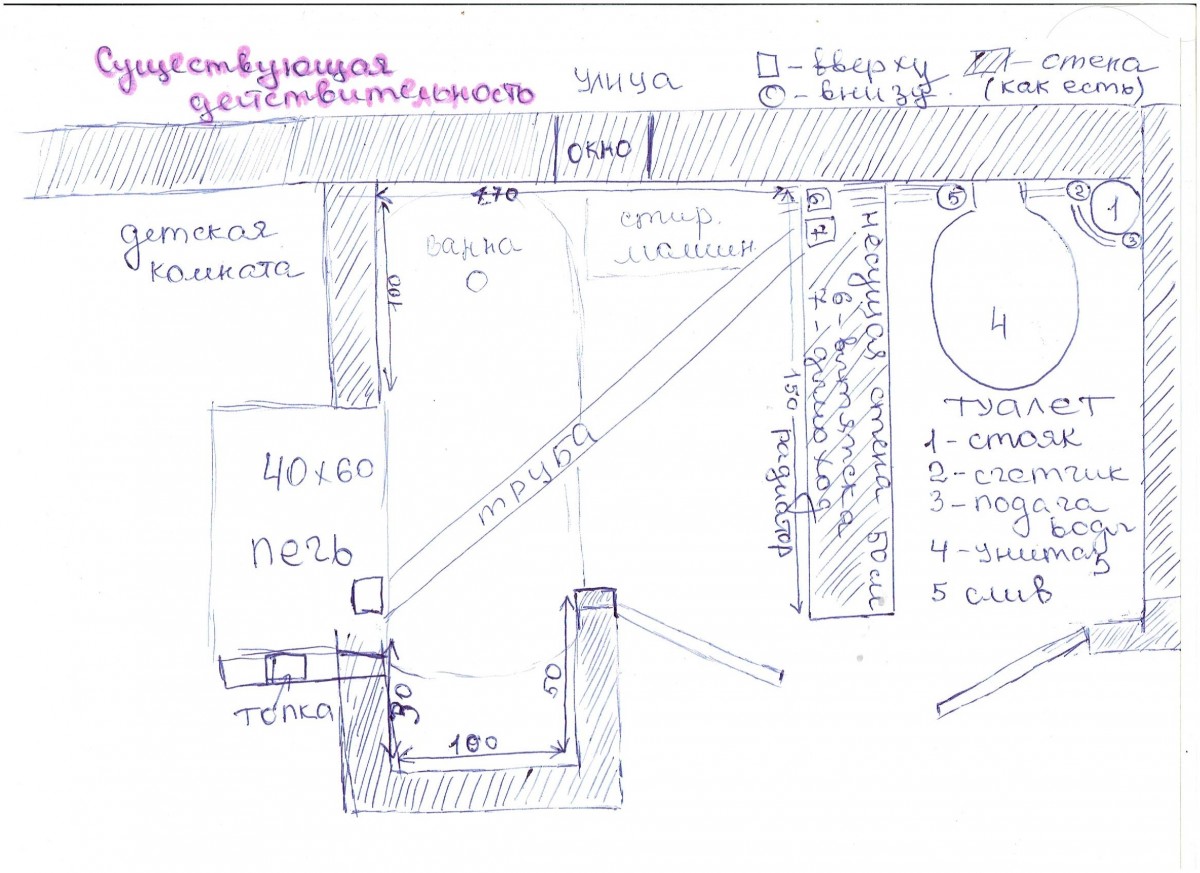 Существующая
действительность
улица
□ - вверху
○ - внизу
- стена
(как есть)
окно
470
6
7
5
2
1
3
детская
комната
ванна
стир.
машин
100
несущая стена 50 см
6 - вытяжка
7 - дымоход
4
150
радиатор
труба
40x60
печь
туалет
1 - стояк
2 - счетчик
3 - подача
воды
4 - унитаз
5 слив
топка
30
50
100